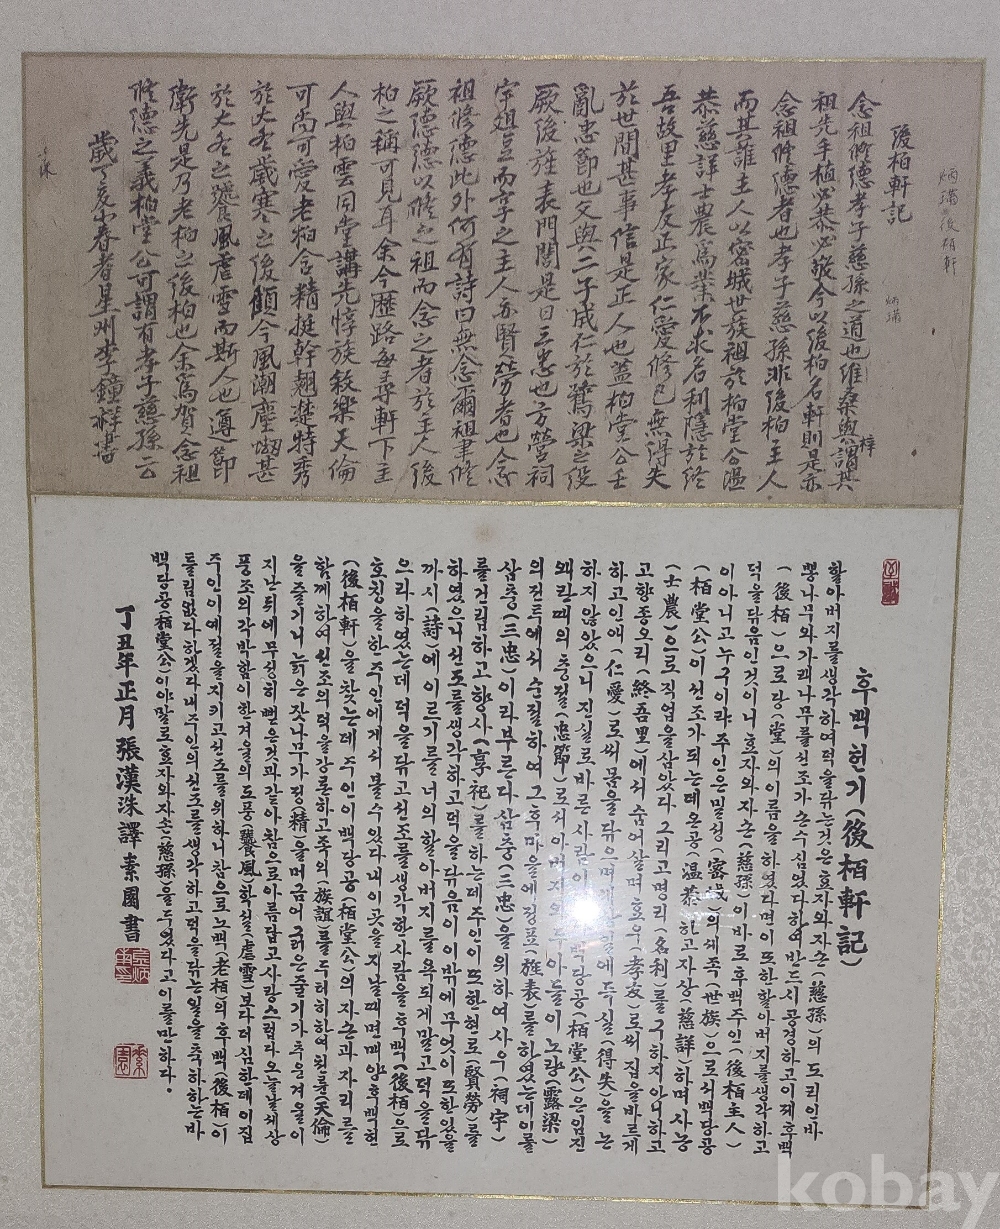 後栢軒記
念祖修德孝子慈孫之道也維桑與梓謂其
祖先手植必恭必敬今以後栢名軒則是亦
念祖修德者也孝子慈孫非後栢主人
而其誰主人以密城世族祖於栢堂公溫
恭慈詳士農爲業不求名利隱於終
吾故里孝友正家仁愛修己無得失
於世間甚事信是正人也盖栢堂公壬
亂忠節也父與二子成仁於鷺梁之役
厥後旌表門閭是曰三忠也方營祠
宇俎豆而享之主人亦賢勞者也念
祖修德此外何有詩曰無念爾祖聿修
厥德德以修之祖而念之者於主人後
栢之稱可見耳余今歷路每尋軒下主
人與栢雲同堂講先惇族敍樂天倫
可尚可愛老栢含精挺幹翹楚特秀
於大冬歲寒之後顧今風潮塵甚
於大冬之饕風虐雪而斯人也遵節
衛先是乃老栢之後栢也余篤賀念祖
修德之義栢堂公可謂有孝子慈孫云
歲丁亥小春者星州李鐘祥書
후백헌기(後栢軒記)
할아버지를생각하여덕을닦는것은효자와자손(慈孫)의도리인바
뽕나무와가래나무를선조가손수심었다하여반드시공경하고이제후백
(後栢)으로랑(堂)의이름을하였다며이또한할아버지를생각하고
덕을닦음인것이니효자와자손(慈孫)이바로후백주인(後栢主人)
이아니고누구이랴주인은밀성(密城)의세족(世族)으로서백당공
(栢堂公)이선조가되는데온공(温恭)하고자상(慈詳)하며사농
(士農)으로직업을삼았다그리고명리(名利)를구하지아니하고
고향종오리(終吾里)에서숨어살며효우(孝友)로써집을바르게
하고인애(仁愛)로써몸을닦으며 득실(得失)을논
하지않았으니진실로바른사람이 백당공(栢堂公)은임진
왜란때의충절(忠節)로서아버지와두아들이노량(露梁)
의전투에서순절하여그후마을에정표(旌表)를하였는데이를
삼충(三忠)이라부른다삼충(三忠)을위하여사우(祠宇)
를건립하고향사(享祀)를하는데주인이또한현로(賢勞)를
하였으니선도를생각하고덕을닦음이이밖에무엇이또한있을
까시(詩)에이르기를너의할아버지를욕되게말고덕을닦
으라하였는데덕을닦고선조를생각한사람을후백(後栢)으로
호칭을한주인에게서볼수있다내이곳을지날때면매양후백헌
(後栢軒)을찾는데주인이백당공(栢堂公)의자손과자리를
함께하여선조의덕을강론하고족의(族誼)를두터히하여천륜(天倫)
을즐기니늙은잣나무가정(精)을머금어굵은줄기가추운겨울이
지난뒤에무성히뻗은것과같아참으로아름답고사랑스럽다오늘날세상
풍조의각박함이한겨울의도풍(饕風)학설(虐雪)보다더심한데이집
주인이예절을지키고선조를위하니참으로노백(老栢)의후백(後栢)이
틀림없다하겠다내주인의선조를생각하고덕을닦는일을축하하는바
백당공(栢堂公)이야말로효자와자손(慈孫)을두었다고이를만하다.
丁丑年正月張漢洙譯 素園書
kobay